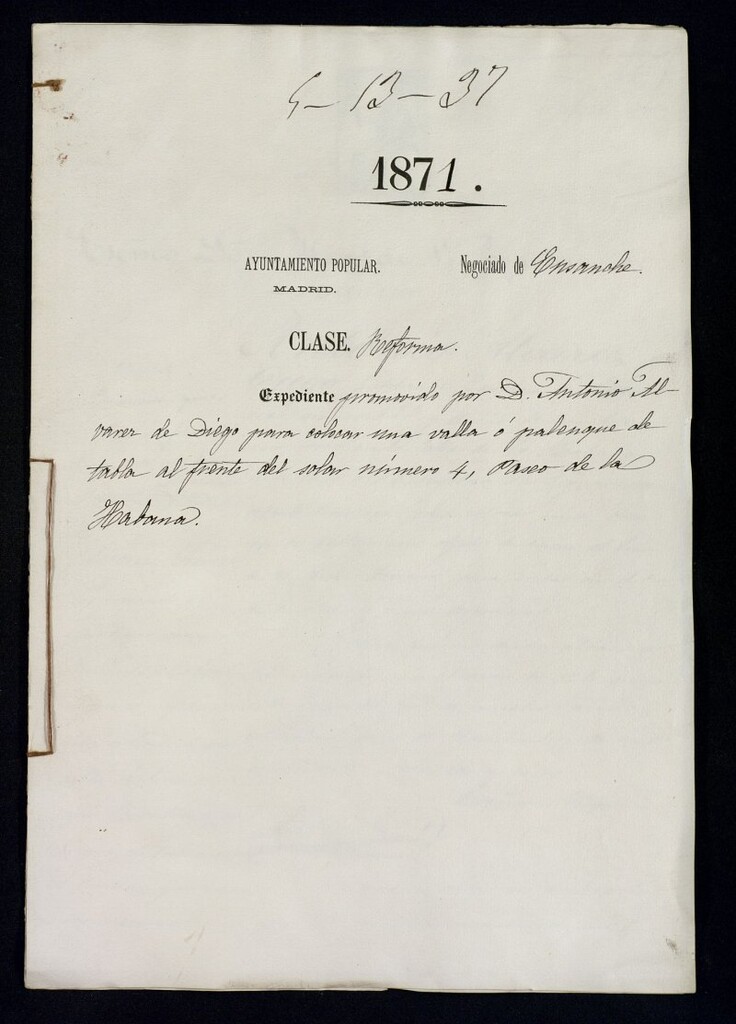 5-13-37
1871.
AYUNTAMIENTO POPULAR.
MADRID.
Negociado de Ensanche.
CLASE. Reforma.
Expediente promovido por D. Antonio Al-
varez de Diego para colocar una valla ó palenque de
tabla al frente del solar número 4, Paseo de la
Habana.